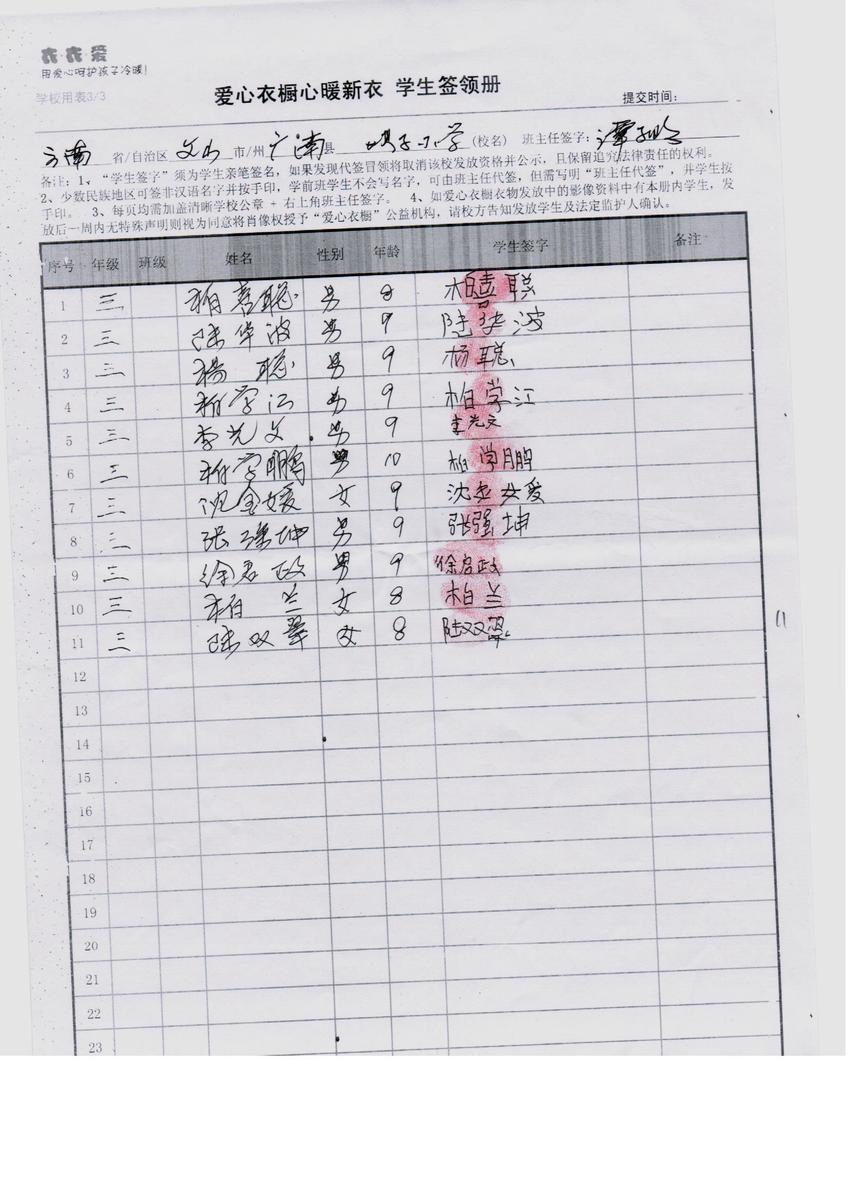 衣·衣·爱
用爱心呵护孩子冷暖!
学校用表3/3
爱心衣橱心暖新衣 学生签领册
提交时间:
云南 省/自治区 文山 市/州 广南 县 小学 (校名) 班主任签字:
备注: 1、“学生签字”须为学生亲笔签名, 如果发现代签冒领将取消该校发放资格并公示, 且保留追究法律责任的权利。
2、少数民族地区可签非汉语名字并按手印, 学前班学生不会写名字, 可由班主任代签, 但需写明“班主任代签”, 并学生按
手印。 3、每页均需加盖清晰学校公章 + 右上角班主任签字。 4、如爱心衣橱衣物发放中的影像资料中有本册内学生, 发
放后一周内无特殊声明则视为同意将肖像权授予“爱心衣橱”公益机构, 请校方告知发放学生及法定监护人确认。
序号 年级 班级 姓名 性别 年龄 学生签字 备注
1 三 柏喜聪 男 8 柏喜聪
2 三 陆华波 男 9 陆华波
3 三 杨聪 男 9 杨聪
4 三 柏学江 男 9 柏学江
5 三 李光文 男 9 李光文
6 三 柏学鹏 男 10 柏学鹏
7 三 沈金媛 女 9 沈金媛
8 三 张强坤 男 9 张强坤
9 三 徐启政 男 9 徐启政
10 三 柏兰 女 8 柏兰
11 三 陆双翠 女 8 陆双翠
12
13
14
15
16
17
18
19
20
21
22
23